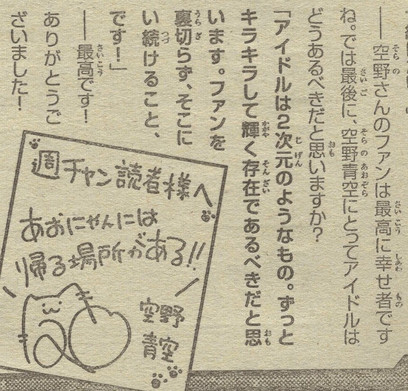 ――空野さんのファンは最高に幸せ者です
ね。では最後に、空野青空にとってアイドルは
どうあるべきだと思いますか？
「アイドルは2次元のようなもの。ずっと
キラキラして輝く存在であるべきだと思
います。ファンを
裏切らず、そこに
い続けること、
です！」
――最高です！
ありがとうご
ざいました！
週チャン読者様へ
あおにゃんには
帰る場所がある!!
空野
青空